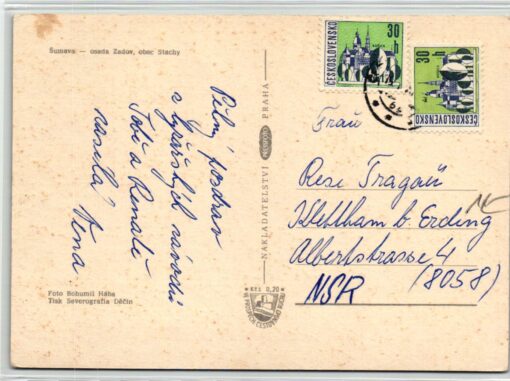 Šumava — osada Zadov, obec Stachy
Pěkný pozdrav
z lyžařských závodů
Tobě a Renatě
zasílá Vena
Foto Bohumil Háha
Tisk Severografia Děčín
NAKLADATELSTVÍ PRESSFOTO PRAHA
Kčs 0,20
ČESKOSLOVENSKO
30 h
ČESKOSLOVENSKO
30 h
Frau
Rese
Klettham b. Erding
Albertstrasse 4
NSR (8058)